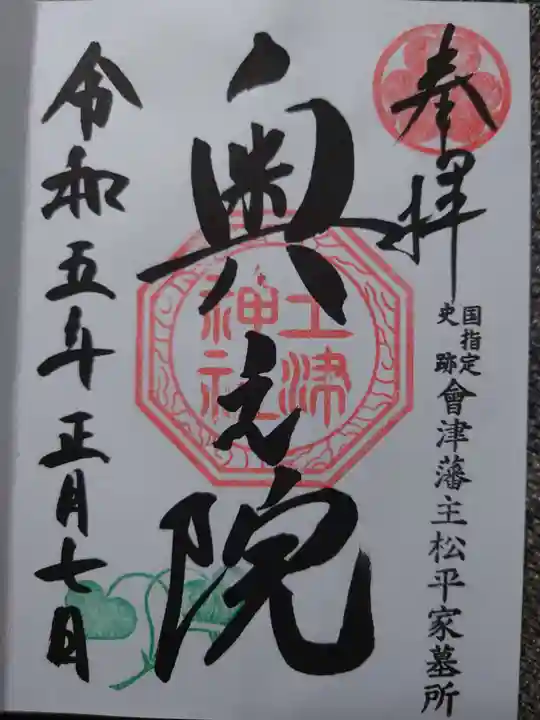 奉拝
国指定
史跡
會津藩主松平家墓所
奥之院
土津
神社
令和五年正月七日